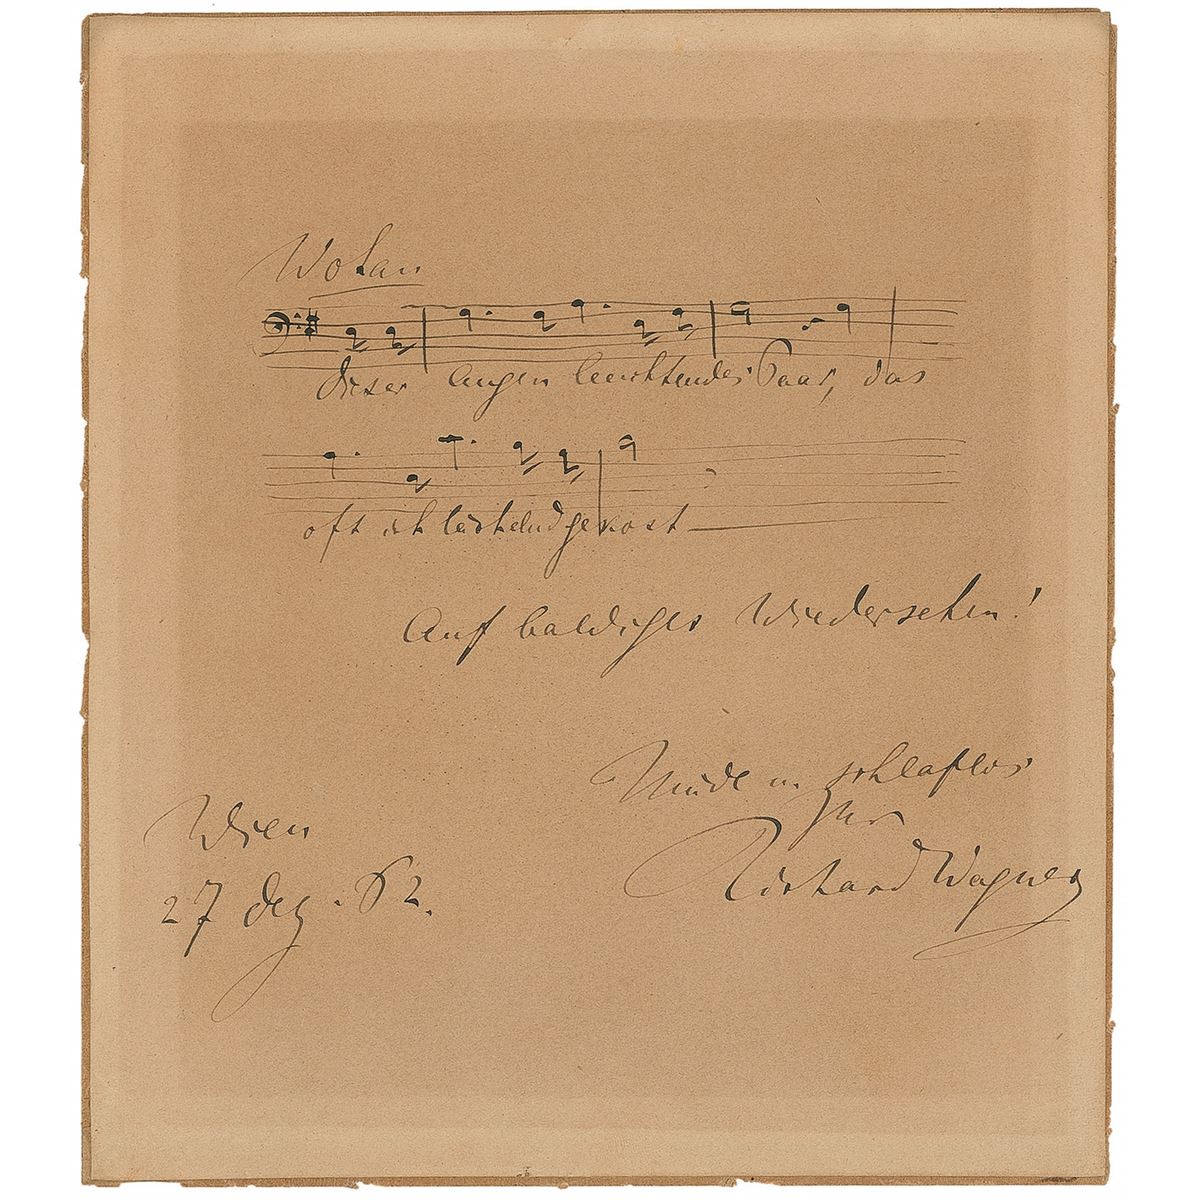 Wotan
Dieser Augen leuchtendes Paar, das
oft ich lächelnd gekost —
Auf baldiges Wiedersehen!
Müde u. schlaflos
Ihr
Richard Wagner
Wien
27 Dez. 62.